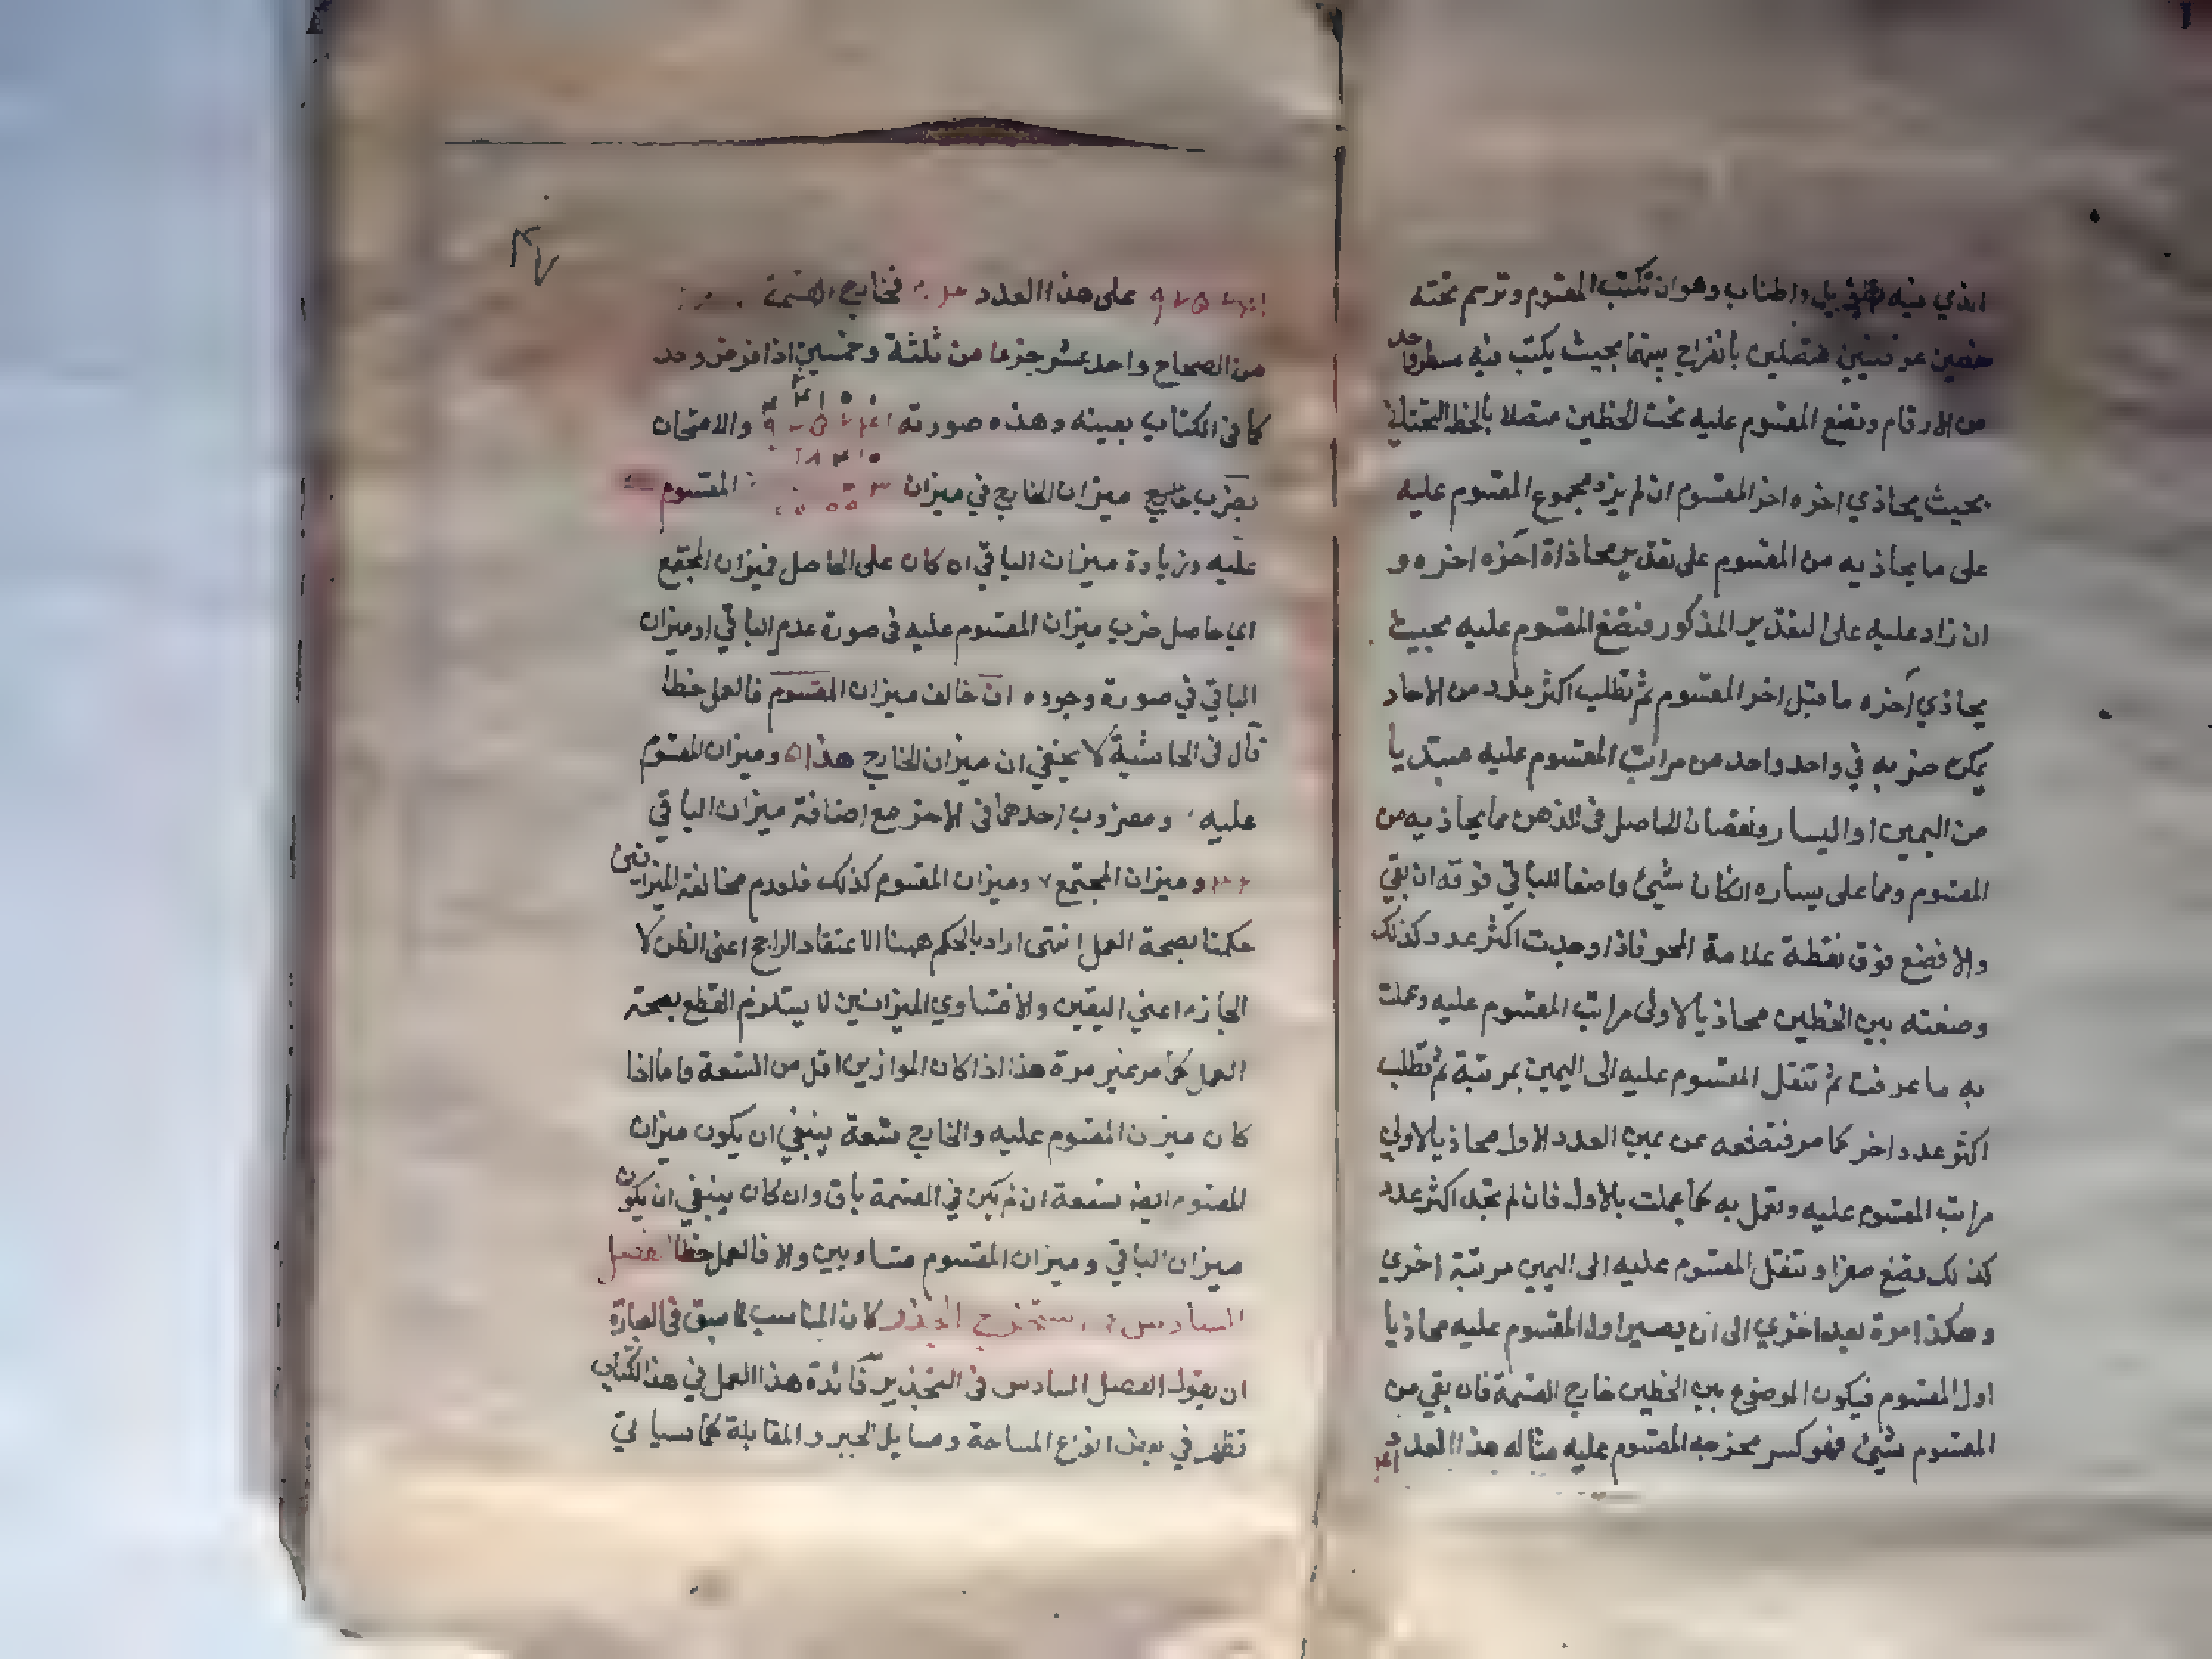 الذي فيه تطويل واطناب وهو ان تكتب المقسوم وترسم تحته
خطين عرضيين متصلين بانفراج بينهما بحيث يكتب فيه سطر واحد
من الارقام وتضع المقسوم عليه تحت الخطين متصلا بالخط التحتاني
بحيث يحاذي اخره اخر المقسوم ان لم يزد مجموع المقسوم عليه
على ما يحاذيه من المقسوم على تقدير محاذاة آخره اخره و
ان زاد عليه على التقدير المذكور فتضع المقسوم عليه بحيث
يحاذي آخره ما قبل اخر المقسوم ثم تطلب اكثر عدد من الاحاد
يمكن ضربه في واحد واحد من مراتب المقسوم عليه مبتديا
من اليمين او اليسار ونقصان الحاصل في الذهن مما يحاذيه من
المقسوم ومما على يساره انكان شيئ واضعا للباقي فوقه ان بقي
والا فضع فوق نقطة علامة المحو فاذا وجدت اكثر عدد كذلك
وضعته بين الخطين محاذيا لاولى مراتب المقسوم عليه وعملت
به ما عرفت ثم تنقل المقسوم عليه الى اليمين بمرتبة ثم تطلب
اكثر عدد اخر كما مر فتضعه عن يمين العدد الاول محاذيا لاولي
مراتب المقسوم عليه وتعمل به كما عملت بالاول فان لم تجد اكثر عدد
كذلك تضع صفرا وتنقل المقسوم عليه الى اليمين مرتبة اخري
وهكذا مرة بعد اخري الى ان يصير اول المقسوم عليه محاذيا
اول المقسوم فيكون الموضوع بين الخطين خارج القسمة فان بقي من
المقسوم شيئ فهو كسر مخرجه المقسوم عليه مثاله هذا العدد
٤٧
على هذا العدد فخارج القسمة
من الصحاح واحد عشر جزءا من ثلثة وخمسين اذا فرض واحد
كما في الكتاب بعينه وهذه صورته والامتحان
بضرب ميزان الخارج في ميزان المقسوم
عليه وزيادة ميزان الباقي ان كان على الحاصل فميزان المجتمع
اي حاصل ضرب ميزان المقسوم عليه في صورة عدم الباقي او ميزان
الباقي في صورة وجوده ان خالف ميزان المقسوم فالعمل خطا
قال في الحاشية لا يخفي ان ميزان الخارج هذا ٥ وميزان المقسوم
عليه ومضروب احدهما في الاخر مع اضافة ميزان الباقي
وميزان المجتمع ٧ وميزان المقسوم كذلك فلعدم مخالفة الميزانين
حكمنا بصحة العمل انتهى اراد بالحكم ههنا الاعتقاد الراجح اعني الظن لا
الجازم اعني اليقين والا فتساوي الميزانين لا يستلزم القطع بصحته
العمل كما مر غير مرة هذا اذا كان الموازين اقل من التسعة واما اذا
كان ميزن المقسوم عليه والخارج تسعة ينبغي ان يكون ميزان
المقسوم ايضا تسعة ان لم يكن في القسمة باق وان كان ينبغي ان يكون
ميزان الباقي وميزان المقسوم متساويين والا فالعمل خطا الفصل
السادس في استخراج الجذر كان المناسب لما سبق في العبارة
ان يقول الفصل السادس في التجذير فائدة هذا العمل في هذا الكتاب
تظهر في بعض انواع المساحة ومسايل الجبر والمقابلة كما سياتي